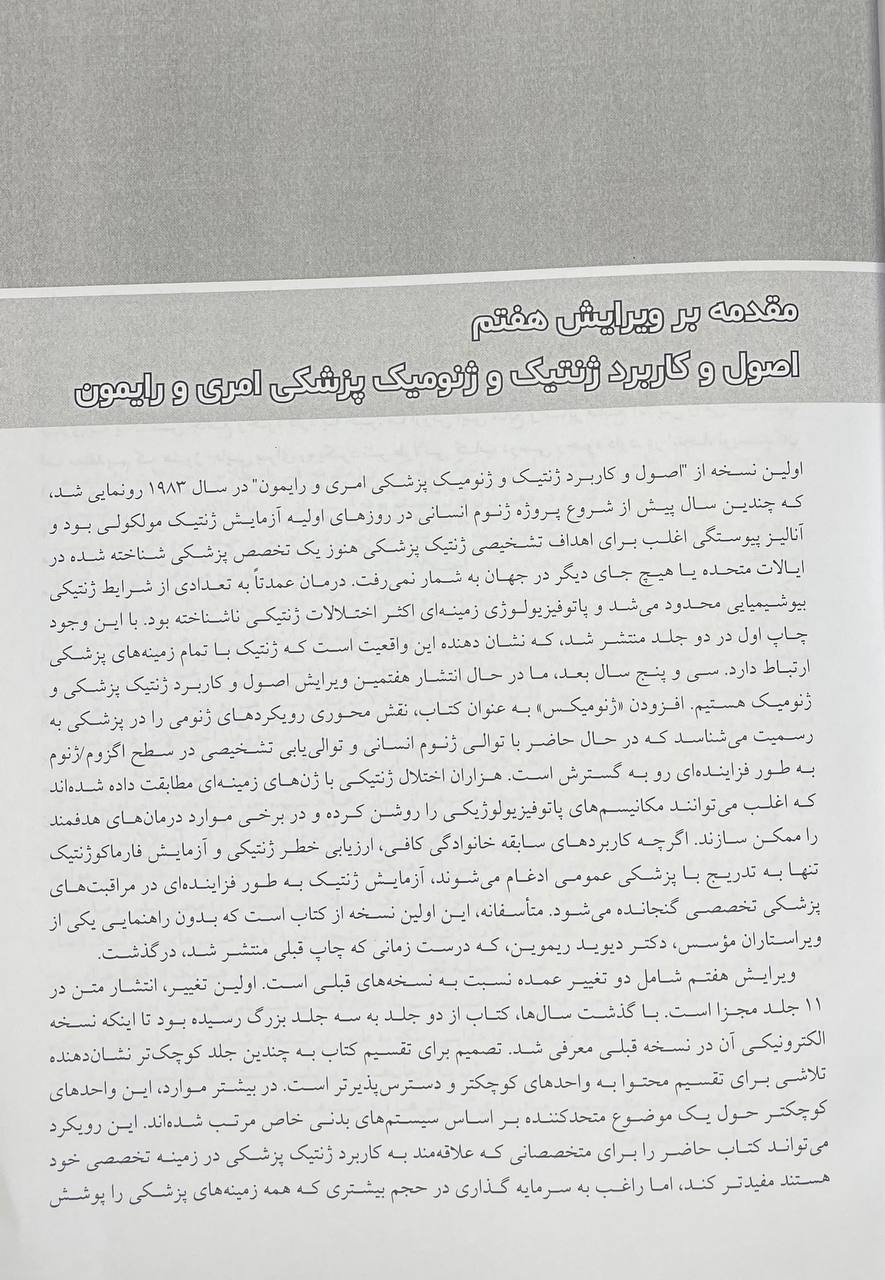 مقدمه بر ویرایش هفتم
اصول و کاربرد ژنتیک و ژنومیک پزشکی امری و رایمون
اولین نسخه از "اصول و کاربرد ژنتیک و ژنومیک پزشکی امری و رایمون" در سال ۱۹۸۳ رونمایی شد،
که چندین سال پیش از شروع پروژه ژنوم انسانی در روزهای اولیه آزمایش ژنتیک مولکولی بود و
آنالیز پیوستگی اغلب برای اهداف تشخیصی ژنتیک پزشکی هنوز یک تخصص پزشکی شناخته شده در
ایالات متحده یا هیچ جای دیگر در جهان به شمار نمی‌رفت. درمان عمدتاً به تعدادی از شرایط ژنتیکی
بیوشیمیایی محدود می‌شد و پاتوفیزیولوژی زمینه‌ای اکثر اختلالات ژنتیکی ناشناخته بود. با این وجود
چاپ اول در دو جلد منتشر شد، که نشان دهنده این واقعیت است که ژنتیک با تمام زمینه‌های پزشکی
ارتباط دارد. سی و پنج سال بعد، ما در حال انتشار هفتمین ویرایش اصول و کاربرد ژنتیک پزشکی و
ژنومیک هستیم. افزودن «ژنومیکس» به عنوان کتاب، نقش محوری رویکردهای ژنومی را در پزشکی به
رسمیت می‌شناسد که در حال حاضر با توالی ژنوم انسانی و توالی‌یابی تشخیصی در سطح اگزوم/ژنوم
به طور فزاینده‌ای رو به گسترش است. هزاران اختلال ژنتیکی با ژن‌های زمینه‌ای مطابقت داده شده‌اند
که اغلب می‌توانند مکانیسم‌های پاتوفیزیولوژیکی را روشن کرده و در برخی موارد درمان‌های هدفمند
را ممکن سازند. اگرچه کاربردهای سابقه خانوادگی کافی، ارزیابی خطر ژنتیکی و آزمایش فارماکوژنتیک
تنها به تدریج با پزشکی عمومی ادغام می‌شوند، آزمایش ژنتیک به طور فزاینده‌ای در مراقبت‌های
پزشکی تخصصی گنجانده می‌شود. متأسفانه، این اولین نسخه از کتاب است که بدون راهنمایی یکی از
ویراستاران مؤسس، دکتر دیوید ریموین، که درست زمانی که چاپ قبلی منتشر شد، درگذشت.
ویرایش هفتم شامل دو تغییر عمده نسبت به نسخه‌های قبلی است. اولین تغییر، انتشار متن در
۱۱ جلد مجزا است. با گذشت سال‌ها، کتاب از دو جلد به سه جلد بزرگ رسیده بود تا اینکه نسخه
الکترونیکی آن در نسخه قبلی معرفی شد. تصمیم برای تقسیم کتاب به چندین جلد کوچک‌تر نشان‌دهنده
تلاشی برای تقسیم محتوا به واحدهای کوچکتر و دسترس‌پذیرتر است. در بیشتر موارد، این واحدهای
کوچکتر حول یک موضوع متحدکننده بر اساس سیستم‌های بدنی خاص مرتب شده‌اند. این رویکرد
می‌تواند کتاب حاضر را برای متخصصانی که علاقه‌مند به کاربرد ژنتیک پزشکی در زمینه تخصصی خود
هستند مفیدتر کند، اما راغب به سرمایه گذاری در حجم بیشتری که همه زمینه‌های پزشکی را پوشش